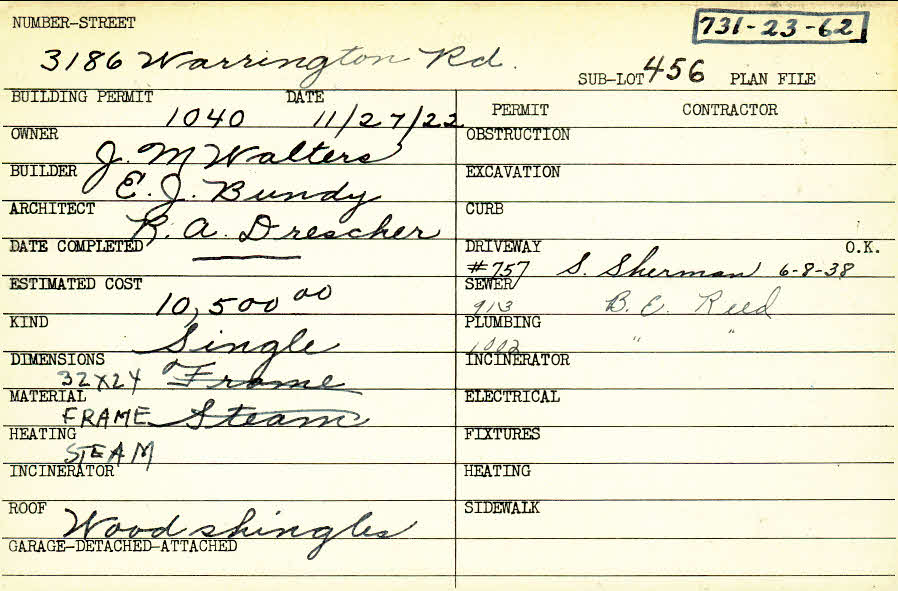 NUMBER-STREET
731-23-62
3186 Warrington Rd.
SUB-LOT 456 PLAN FILE
BUILDING PERMIT DATE
1040 11/27/22
OWNER
J. M Walters
BUILDER
E. J. Bundy
ARCHITECT
R. A. Drescher
DATE COMPLETED
ESTIMATED COST
10,500 00
KIND
Single
DIMENSIONS
32x24 Frame
MATERIAL
FRAME Steam
HEATING
STEAM
INCINERATOR
ROOF
Wood shingles
GARAGE-DETACHED-ATTACHED
PERMIT CONTRACTOR
OBSTRUCTION
EXCAVATION
CURB
DRIVEWAY O.K.
#757 S. Sherman 6-8-38
SEWER
913 B. E. Reed
PLUMBING
" "
INCINERATOR
ELECTRICAL
FIXTURES
HEATING
SIDEWALK